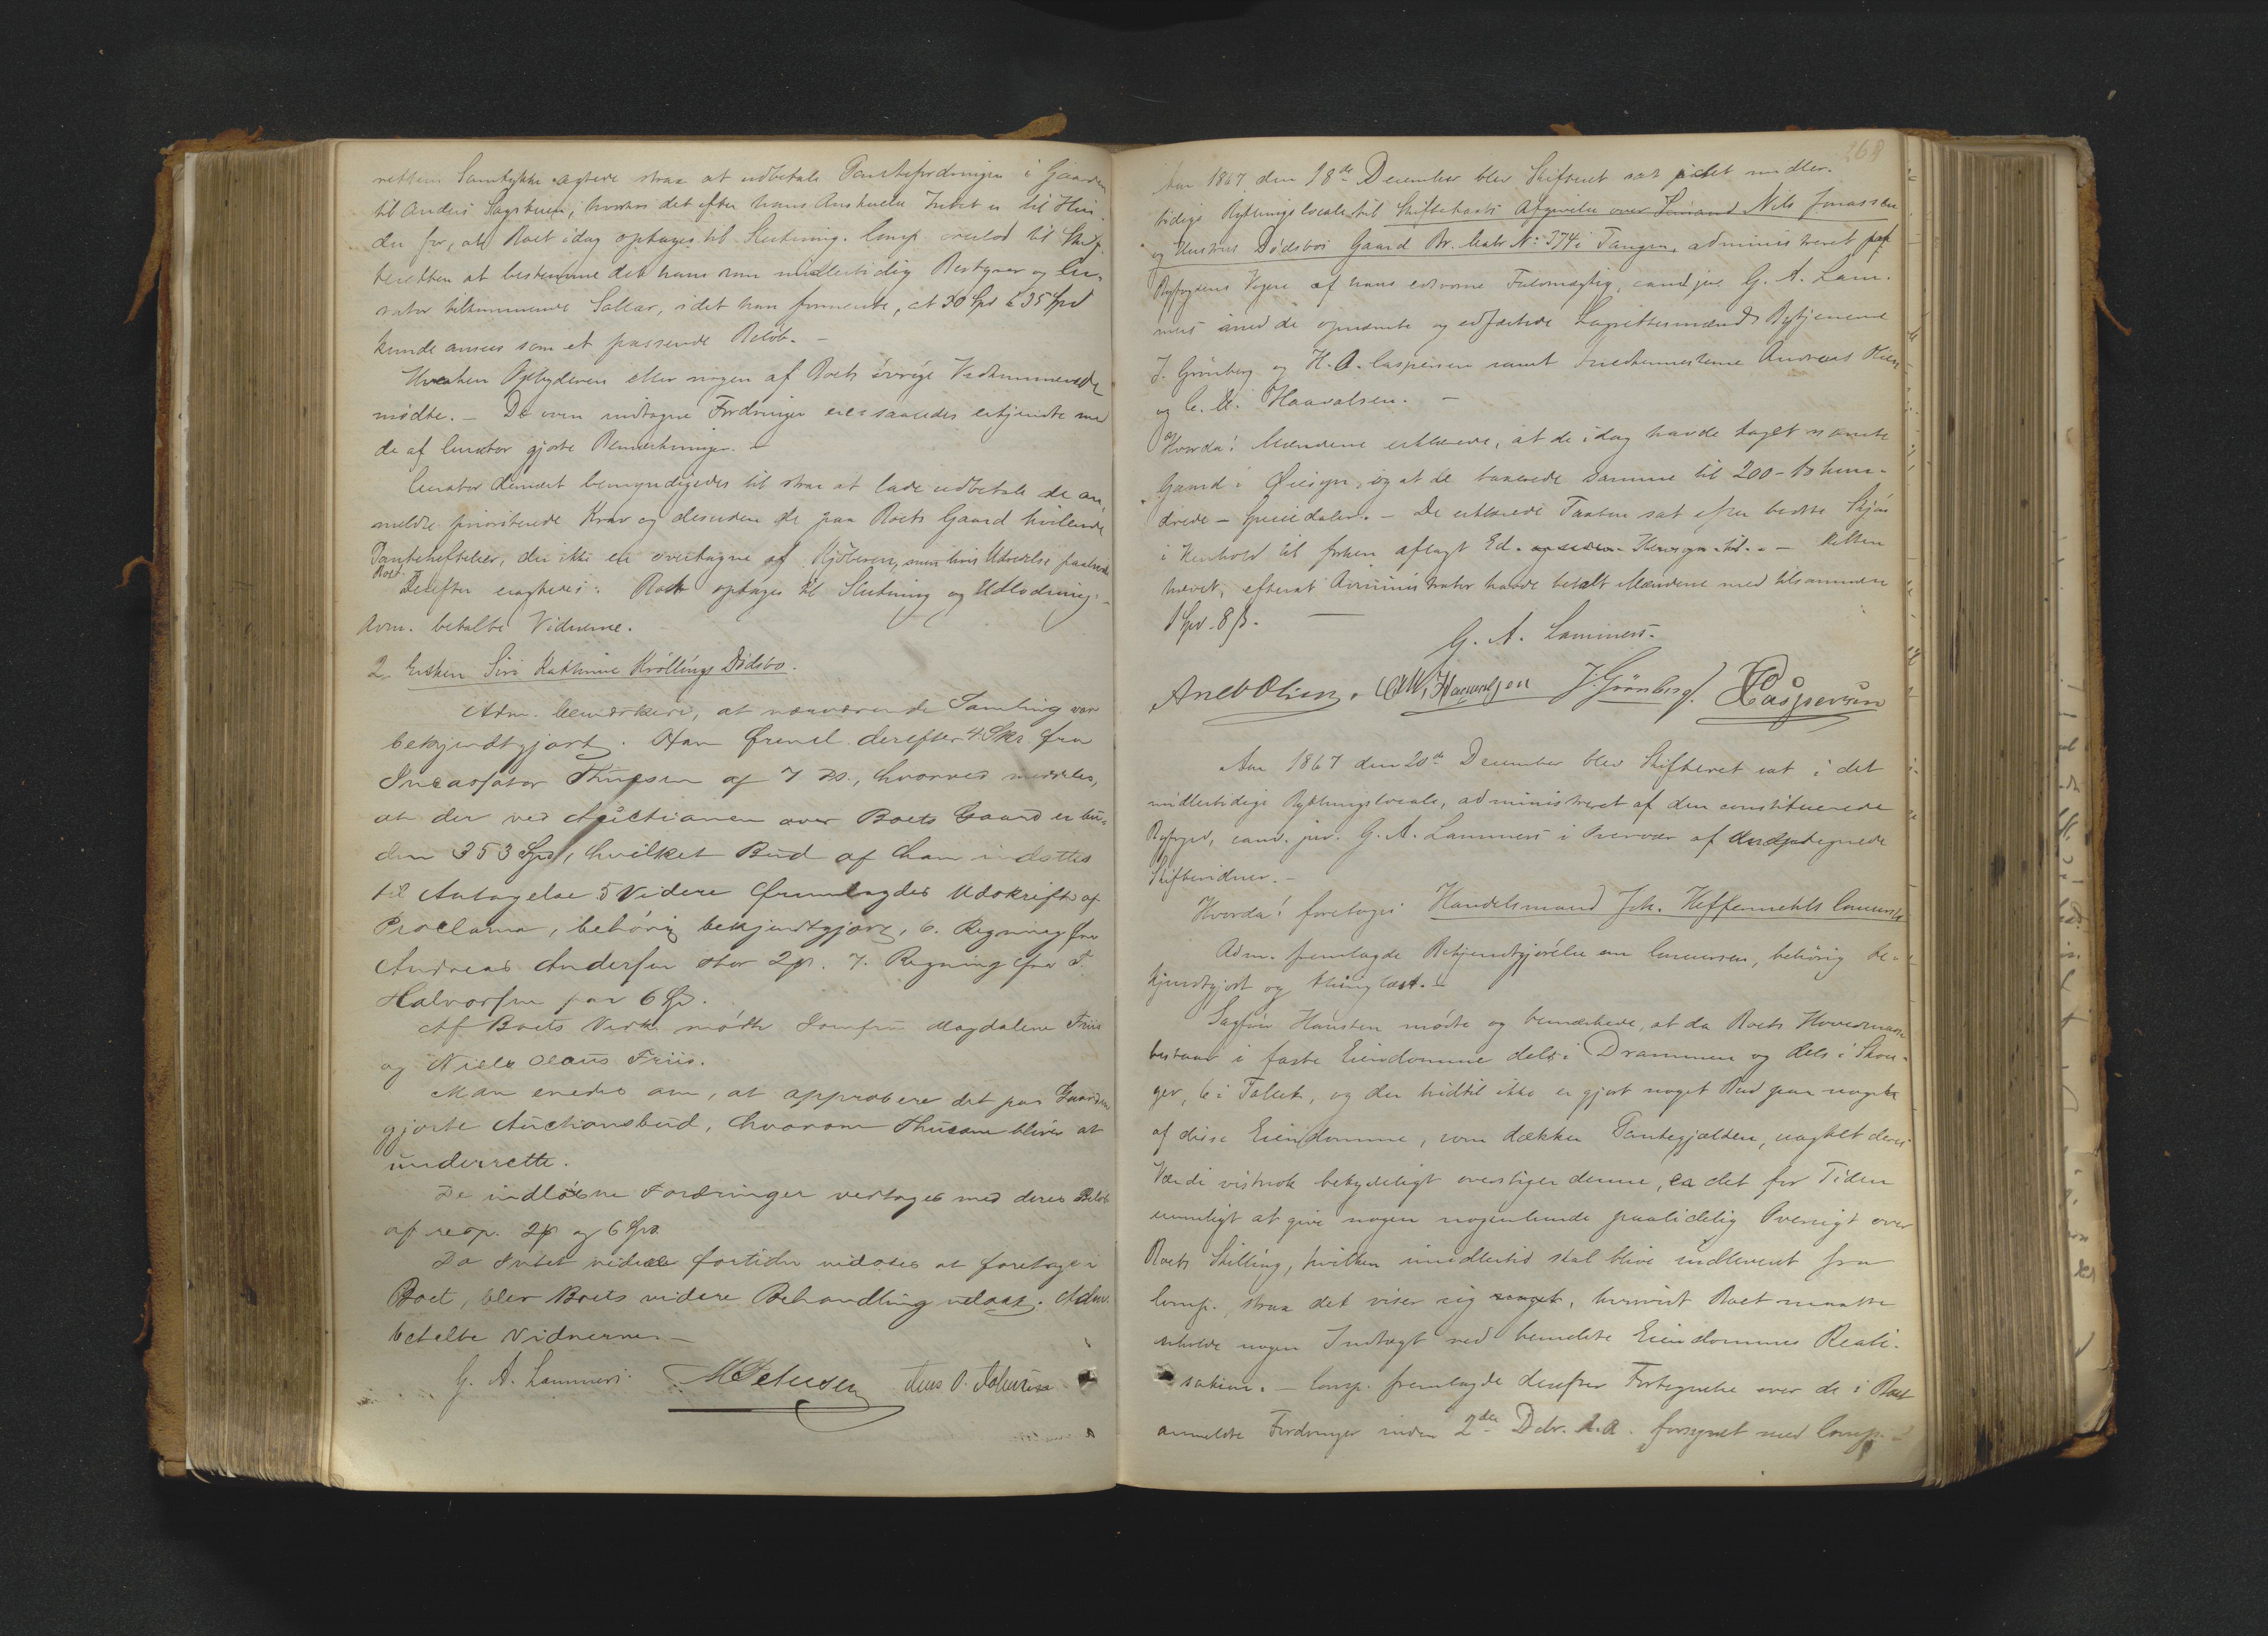 rettens Samtykke agtede strax at udbetale Pantefordringen i Gaarden
til Anders Sagstuen, hvorhos det efter hans Anskuelse Intet er til Hin-
der for, at Boet idag optages til Slutning. Comp. overlod til Skif-
teretten at bestemme det ham som midlertidig Bestyrer og Cu-
rator tilkommende Sallar, idet han formente, at 30 Spd à 35 Spd
kunde ansees som et passende Beløb. –
Hverken Opbyderen eller nogen af Boets øvrige Vedkommende
mødte. – De oven indtagne Fordringer saaledes erkjendte med
de af Curator gjorte Bemærkninger. –
Curator dernæst bemyndigedes til strax at lade udbetale de an-
meldte prioriterede Krav og desuden de paa Boets Gaard hvilende
Pantehæftelser, der ikke ere overtagne af Kjøberen, men hvis Udredelse paahviler
Boet.
Derefter eragtedes: Boet optages til Slutning og Udlodning. –
Adm. betalte Vidnerne.
2. Enken Siri Kathrine Krøllings Dødsbo.
Adm. bemærkede, at nærværende Samling var
bekjendtgjort. Han freml. derefter 4. Skr. fra
Incassator Thuesen af 7 ds., hvorved meddeles,
at der ved Auctionen over Boets Gaard er bu-
den 353 Spd, hvilket Bud af ham indstilles
til Antagelse 5 Videre fremlagdes Udskrift af
Proclama, behørig bekjendtgjort, 6. Regning fra
Andreas Andersen stor 2 . 7. Regning fra T.
Halvorsen paa 6 Spd.
Af Boets Vedk. mødte Jomfru Magdalene Friis
og Niels Olaus Friis.
Man enedes om, at approbere det paa Gaarden
gjorte Auctionsbud, hvorom Thuesen bliver at
underrette.
De indløbne Fordringer vedtages med deres Beløb
af resp. 2 og 6 Spd.
Da Intet videre fortiden vidstes at foretage i
Boet, blev Boets videre Behandling udsat. Adm.
betalte Vidnerne –
G. A. Lammers. M Petersen Jens O. Johnsen
268
Aar 1867 den 18de December blev Skifteret sat i det midler-
tidige Rytningslocale til Skifteta Afgivelse over Nils Jonassen
og Hustrus Dødsbos Gaard Br. Matr No 374 i Tangen, administreret paa
Byfogdens Vegne af hans edsvorne Fuldmægtig, cand jur G. A. Lam-
mers med de opnævnte og edfæstede Lagrettesmænd Bytjenerne
J. Grönberg og H. O. Caspersen samt Snedkermesterne Andreas Olsen
og C. M. Haavalsen. –
Hvorda! Mændene erklærede, at de idag havde taget nævnte
Gaard i Øiesyn, og at de taxerede samme til 200 – to hun-
drede – Speciedaler. – De erklærede Taxten sat efter bedste Skjøn
i Henhold til forhen aflagt Ed. – Retten
hævet, efterat Administrator havde betalt Mændene med tilsammen
1 Spd. 8 ß. –
G. A. Lammers.
And Olsen. CM, Haavalsen J. Grönberg. HO Caspersen
Aar 1867 den 20de December blev Skifteret sat i det
midlertidige Rytningslocale, administreret af den constituerede
Byfoged, cand. jur. G. A. Lammers i Overvær af undertegnede
Skiftevidner. –
Hvorda! foretoges Handelsmand Joh. Heffermehls Concurs
Adm. fremlagde Bekjendtgjørelse om Concursen, behørig be-
kjendtgjort og thinglæst. –
Sagfører Hansteen mødte og bemærkede, at da Boets Hovedmasse
bestaar i faste Eiendomme dels i Drammen og dels i Skou-
ger, 6 i Tallet, og der hidtil ikke er gjort noget Bud paa nogen
af disse Eiendomme, som dækker Pantegjælden, uagtet deres
Værdi vistnok betydeligt overstiger denne, er det for Tiden
umuligt at give nogen nogenlunde paalidelig Oversigt over
Boets Stilling, hvilken imidlertid skal blive indleveret fra
Comp. strax det viser sig , hvorvidt Boet maatte
erholde nogen Indtægt ved bemeldte Eiendommes Reali-
sation. – Comp. fremlagde derefter Fortegnelse over de i Boet
anmeldte Fordringer inden 2den Decbr. d.a. forsynet med Comp.